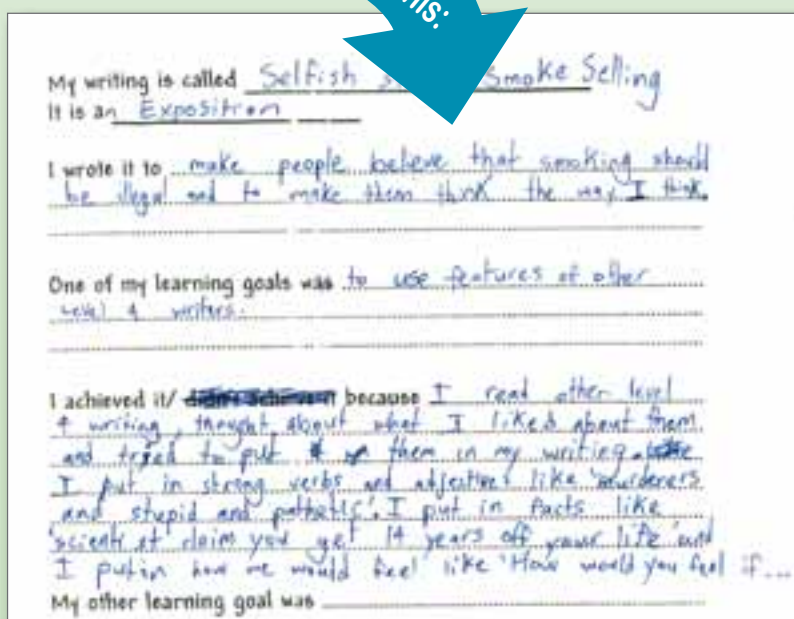 his:
My writing is called Selfish Smoke Selling
It is an Exposition
I wrote it to make people believe that smoking should
be illegal and to make them think the way I think.
One of my learning goals was to use features of other
level 4 writers.
I achieved it/ didn't achieve it because I read other level
4 writing, thought about what I liked about them
and tried to put them in my writing.
I put in strong verbs and adjectives like 'murderers
and stupid and pathetic'. I put in facts like
'scientist claim you get 14 years off your life' and
I put in how we would feel like 'How would you feel if...
My other learning goal was